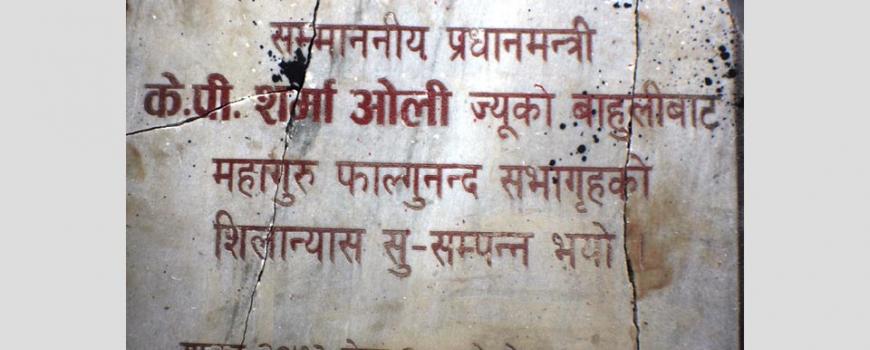 सम्माननीय प्रधानमन्त्री
के.पी. शर्मा ओली ज्यूको बाहुलीबाट
महागुरु फाल्गुनन्द सभागृहको
शिलान्यास सु-सम्पन्न भयो ।